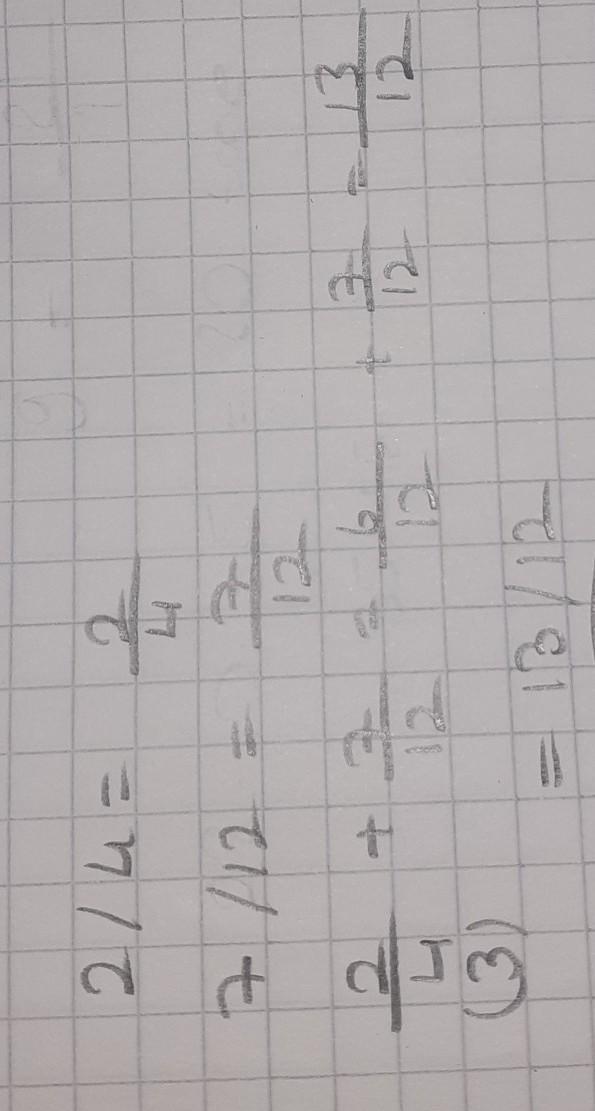 2/4 = 2/4
7/12 = 7/12
2/4 + 7/12 = 6/12 + 7/12 = 13/12
(3)
= 13/12